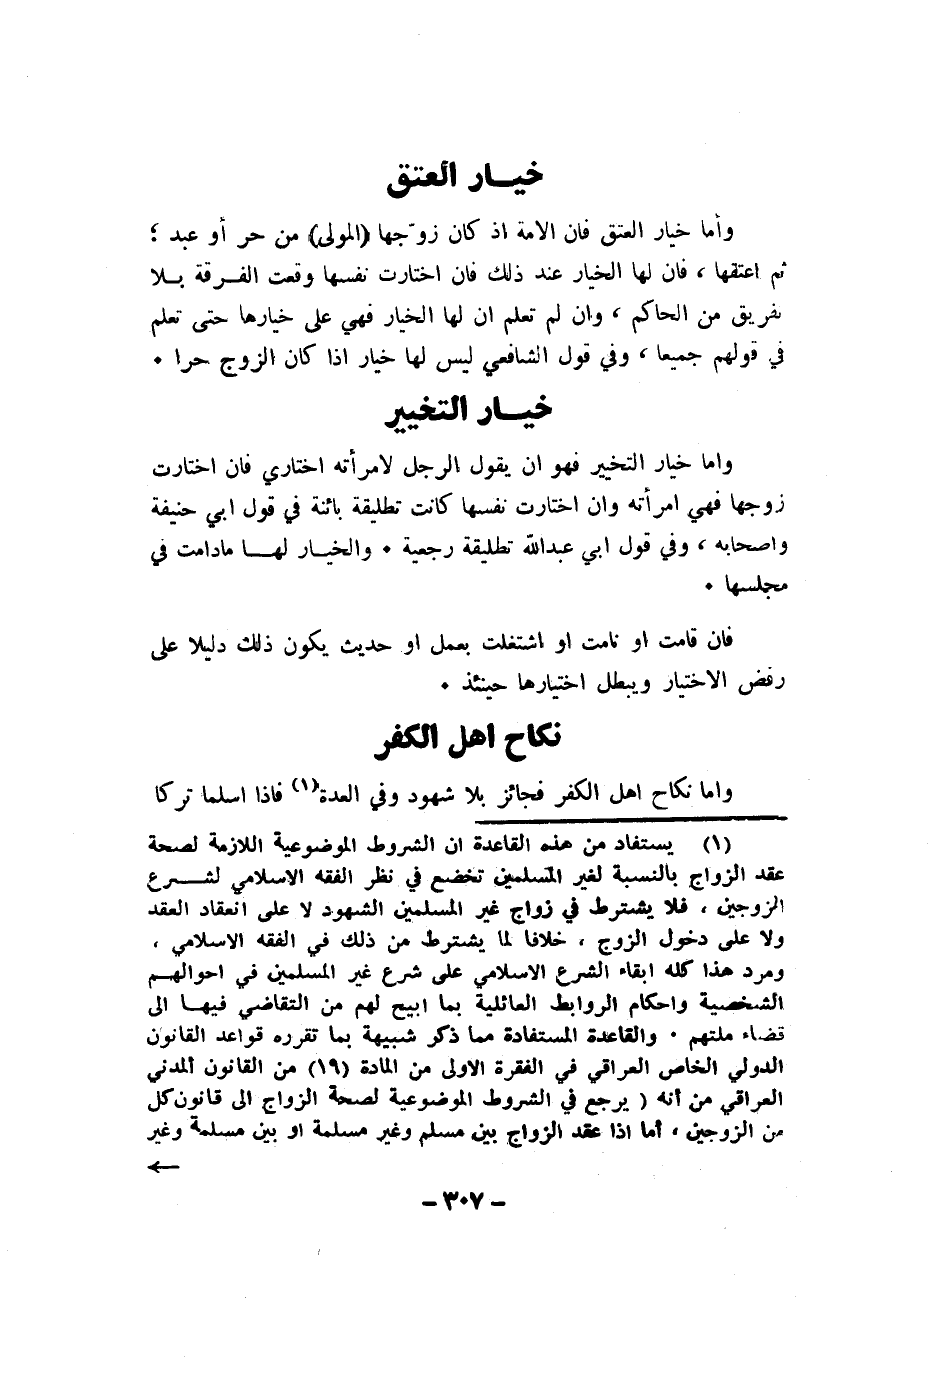 خيـــار العتق
وأما خيار العتق فان الامة اذ كان زوّجها (المولى) من حر أو عبد ؛
ثم اعتقها ، فان لها الخيار عند ذلك فان اختارت نفسها وقعت الفـرقة بـلا
تفريق من الحاكم ، وان لم تعلم ان لها الخيار فهي على خيارها حتى تعلم
في قولهم جميعا ، وفي قول الشافعي ليس لها خيار اذا كان الزوج حرا ٠
خيـــار التخيير
واما خيار التخيير فهو ان يقول الرجل لامرأته اختاري فان اختارت
زوجها فهي امرأته وان اختارت نفسها كانت تطليقة بائنة في قول ابي حنيفة
واصحابه ، وفي قول ابي عبدالله تطليقة رجعية ٠ والخيـار لهـــا مادامت في
مجلسها ٠
فان قامت او نامت او اشتغلت بعمل او حديث يكون ذلك دليلا على
رفض الاختيار ويبطل اختيارها حينئذ ٠
نكاح اهل الكفر
واما نكاح اهل الكفر فجائز بلا شهود وفي العدة(١) فاذا اسلما تركا
(١) يستفاد من هذه القاعدة ان الشروط الموضوعية اللازمة لصحة
عقد الزواج بالنسبة لغير المسلمين تخضع في نظر الفقه الاسلامي لشـــرع
الزوجين ، فلا يشترط في زواج غير المسلمين الشهود لا على انعقاد العقد
ولا على دخول الزوج ، خلافا لما يشترط من ذلك في الفقه الاسلامي ،
ومرد هذا كله ابقاء الشرع الاسلامي على شرع غير المسلمين في احوالهـم
الشخصية واحكام الروابط العائلية بما ابيح لهم من التقاضي فيهـا الى
قضاء ملتهم ٠ والقاعدة المستفادة مما ذكر شبيهة بما تقرره قواعد القانون
الدولي الخاص العراقي في الفقرة الاولى من المادة (١٩) من القانون المدني
العراقي من أنه ( يرجع في الشروط الموضوعية لصحة الزواج الى قانون كل
من الزوجين ، أما اذا عقد الزواج بين مسلم وغير مسلمة او بين مسلمة وغير
←
- ٣٠٧ -